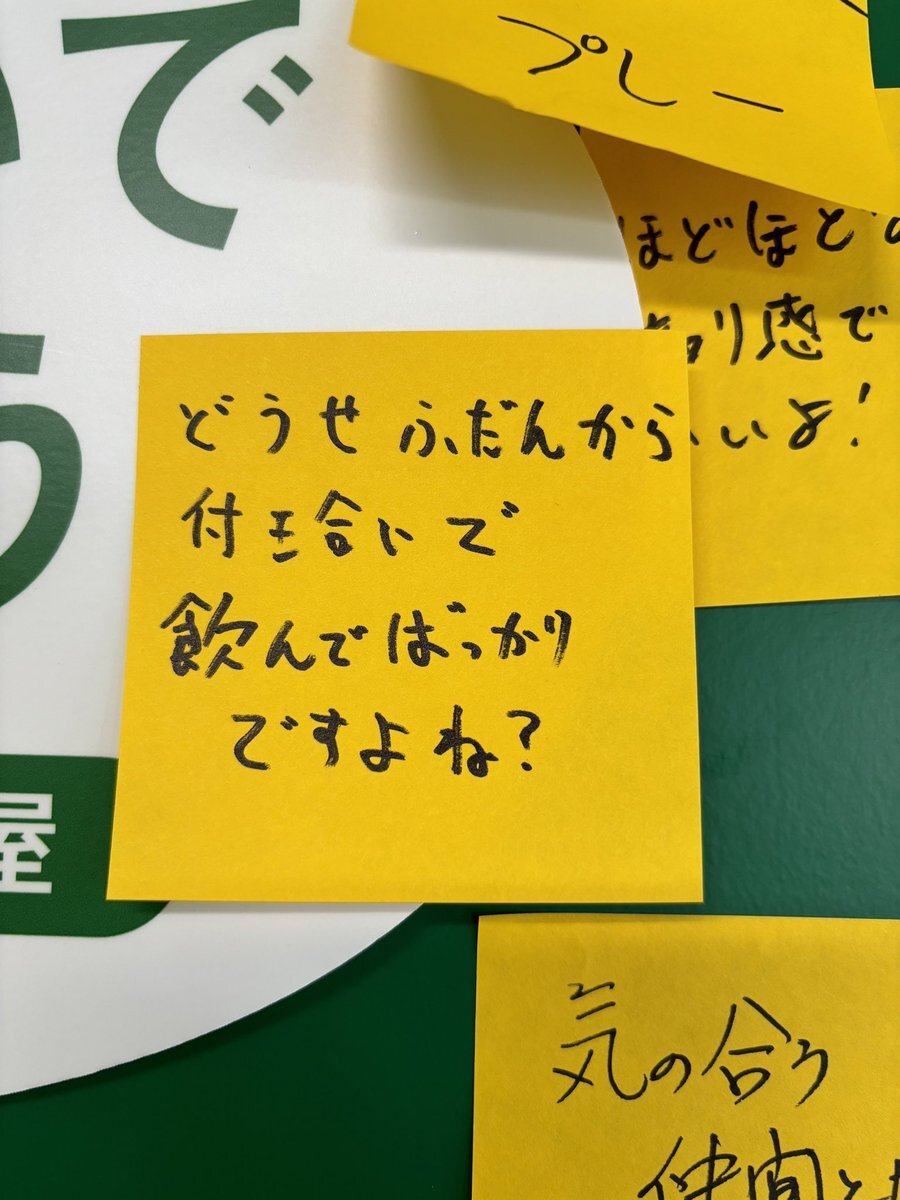 で
プレー
ほどほどの
り感で
いいよ!
どうせ ふだんから
付き合いで
飲んでばっかり
ですよね?
屋
気の合う
仲間と